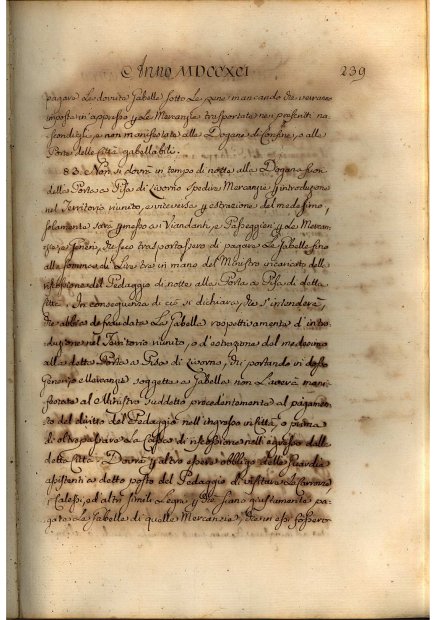 Anno MDCCXCI 239
pagare le dovute Gabelle sotto le pene mancando che verranno
imposte in appresso p le Mercanzie trasportate nei presenti na
scondigli, e non manifestate alle Dogane di Confine, o alle
Porte delle Città gabellabili.
83. Non si dovrà in tempo di notte alla Dogana fuori
della Porta a Pisa di Livorno spedire Mercanzie p introduzione
nel Territorio riunito, e viceversa p estrazione dal medesimo,
solamente sarà permesso a Viandanti, e Passeggieri p le Mercan
zie, e Generi, che seco trasportassero di pagare le Gabelle fino
alla somma di Lire tre in mano del Ministro incaricato della
riscossione del Pedaggio di notte alla Porta a Pisa di detta
Città. In conseguenza di ciò si dichiara, che s'intenderà,
che abbia defraudata la Gabella respettivamente d'intro
duzione nel Territorio riunito, o d'estrazione dal medesimo
alla detta Porta a Pisa di Livorno, chi portando vi desto
Generi, e Mercanzie soggette a Gabella non l'averà mani
festate al Ministro suddetto precedentemente al pagamen
to del diritto del Pedaggio nell'ingresso in Città, o prima
di oltrepassare la Cassa di riscossione nell'egresso dalla
detta Città. Dovrà p altro essere obbligo delle Guardie
assistenti a detto posto del Pedaggio di visitare le Carrozze,
Calessi, ed altri simili Legni, p che siano giustamente pa
gate le Gabelle di quelle Mercanzie, che in essi fossero